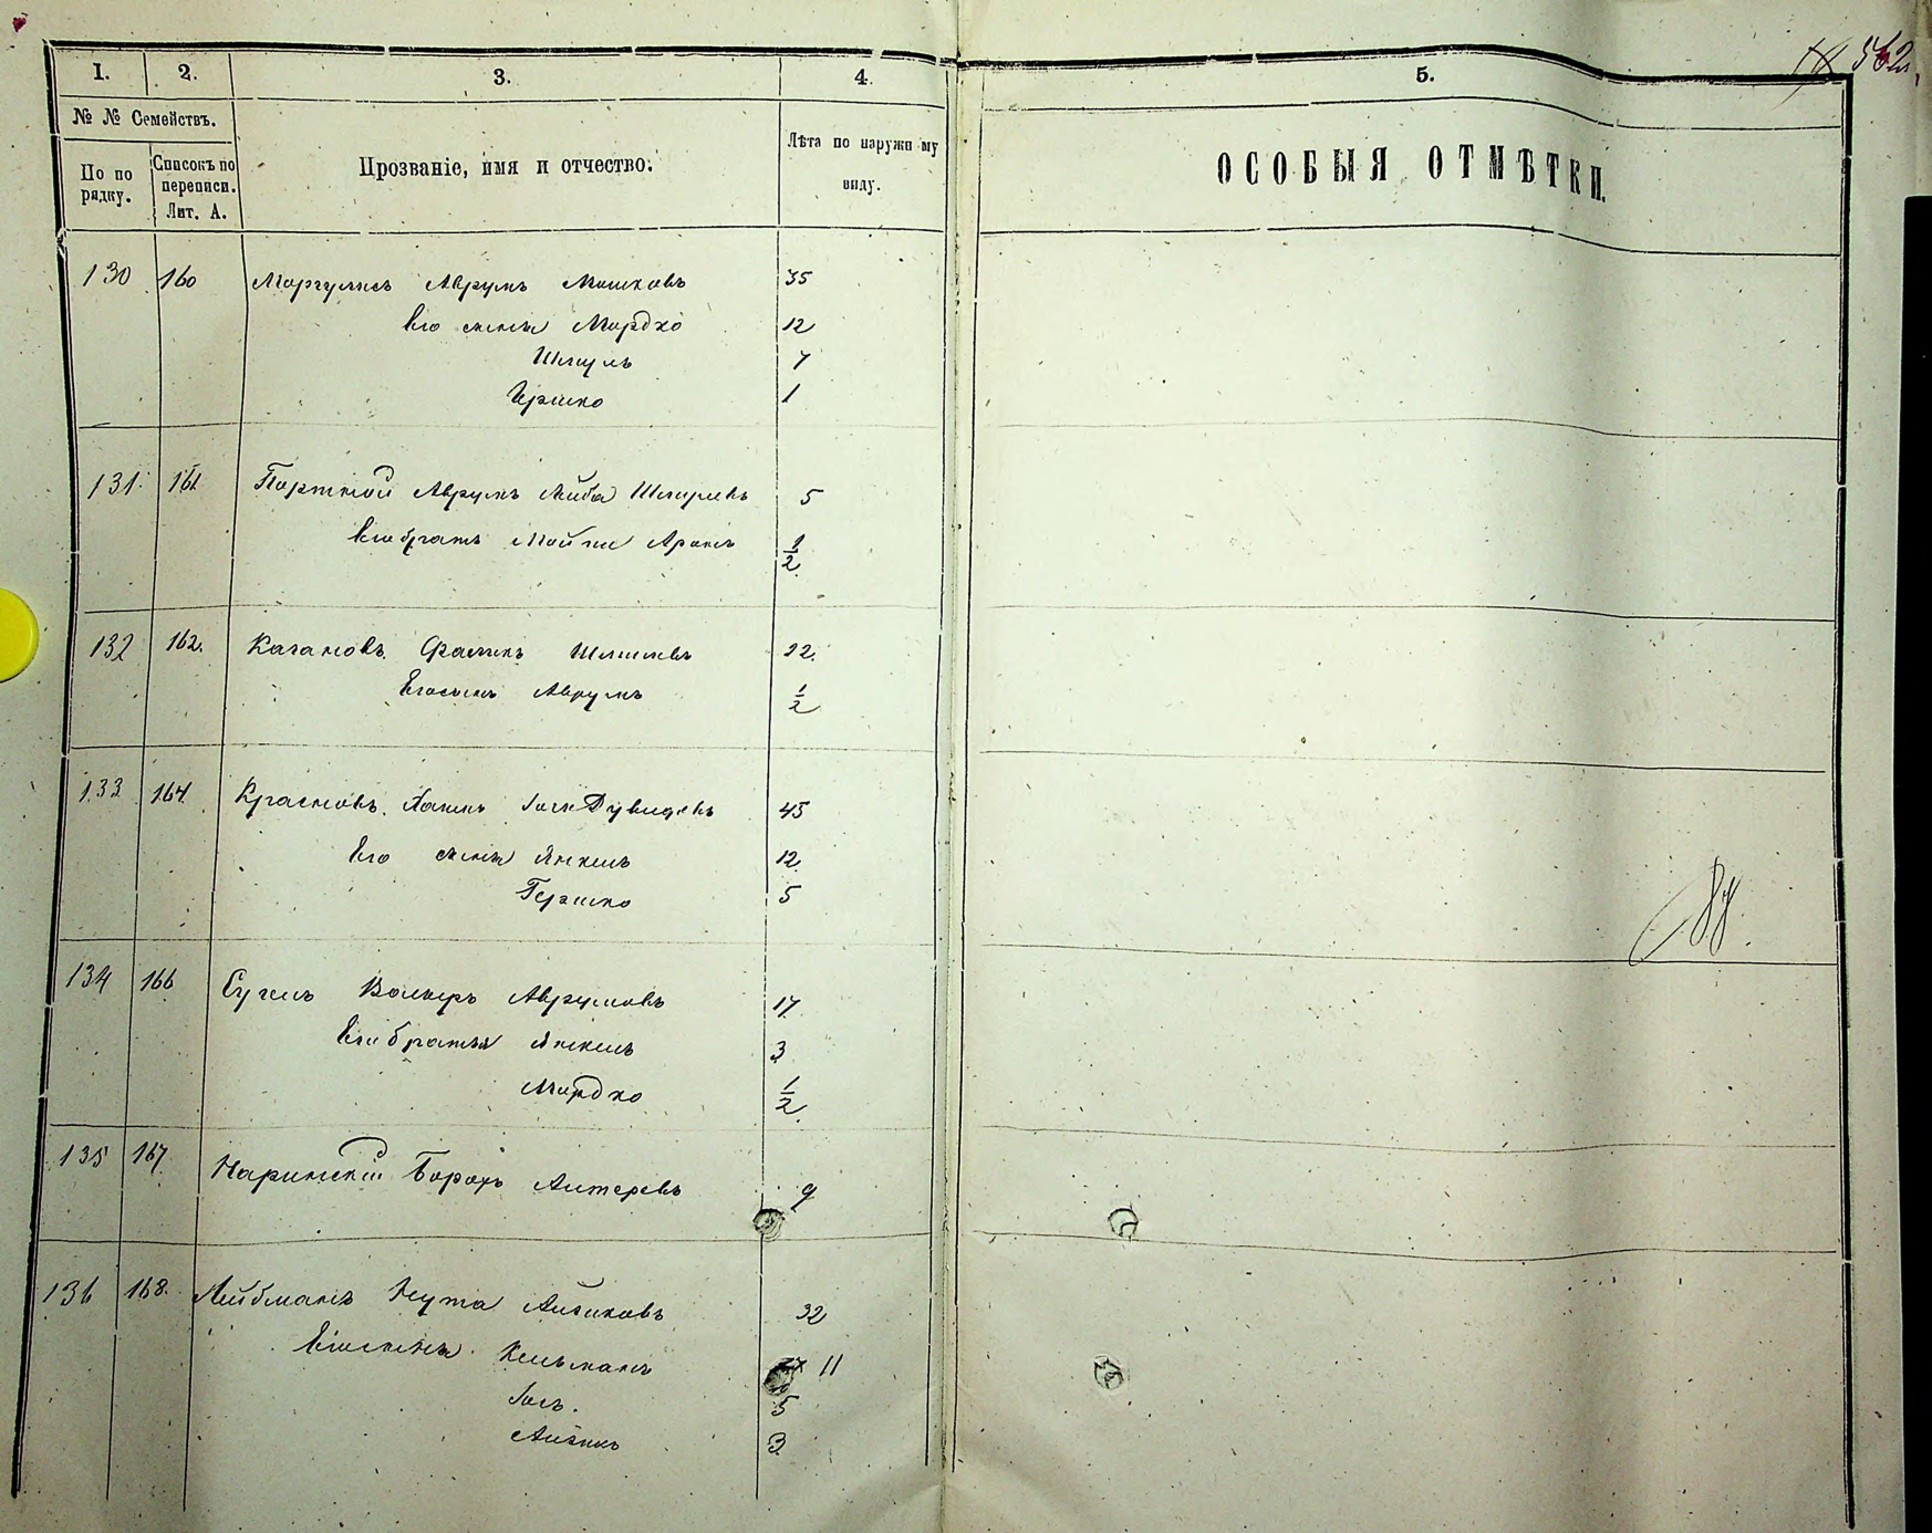 562
1. 2. 3. 4. 5.
№ № Семействъ.
По по рядку.
Списокъ по переписи. Лит. А.
Прозваніе, имя и отчество.
Лѣта по наружн му виду.
ОСОБЫЯ ОТМѢТКИ.
130 160 Моргулисъ Аврумъ Мошковъ 35
Его сынья Мордко 12
Шмуль 7
Гершко 1
131. 161 Портной Аврумъ Лейба 5
Его братъ Аронъ 1/2
132 162. Казановъ 22.
Его сынъ Аврумъ 1/2
133 164 Красновъ Хаимъ 45
Его сынья Янкель 12
Гершко 5
134 166 Волько Аврумовъ 17
Его братья Янкель 3
Мордко 1/2
135 167 Наринскій Борохъ Алтеровъ 9
136 168. Лейбманъ Нута Айзиковъ 32
Его сынья Кельманъ 11
Іось. 5
Айзикъ 3